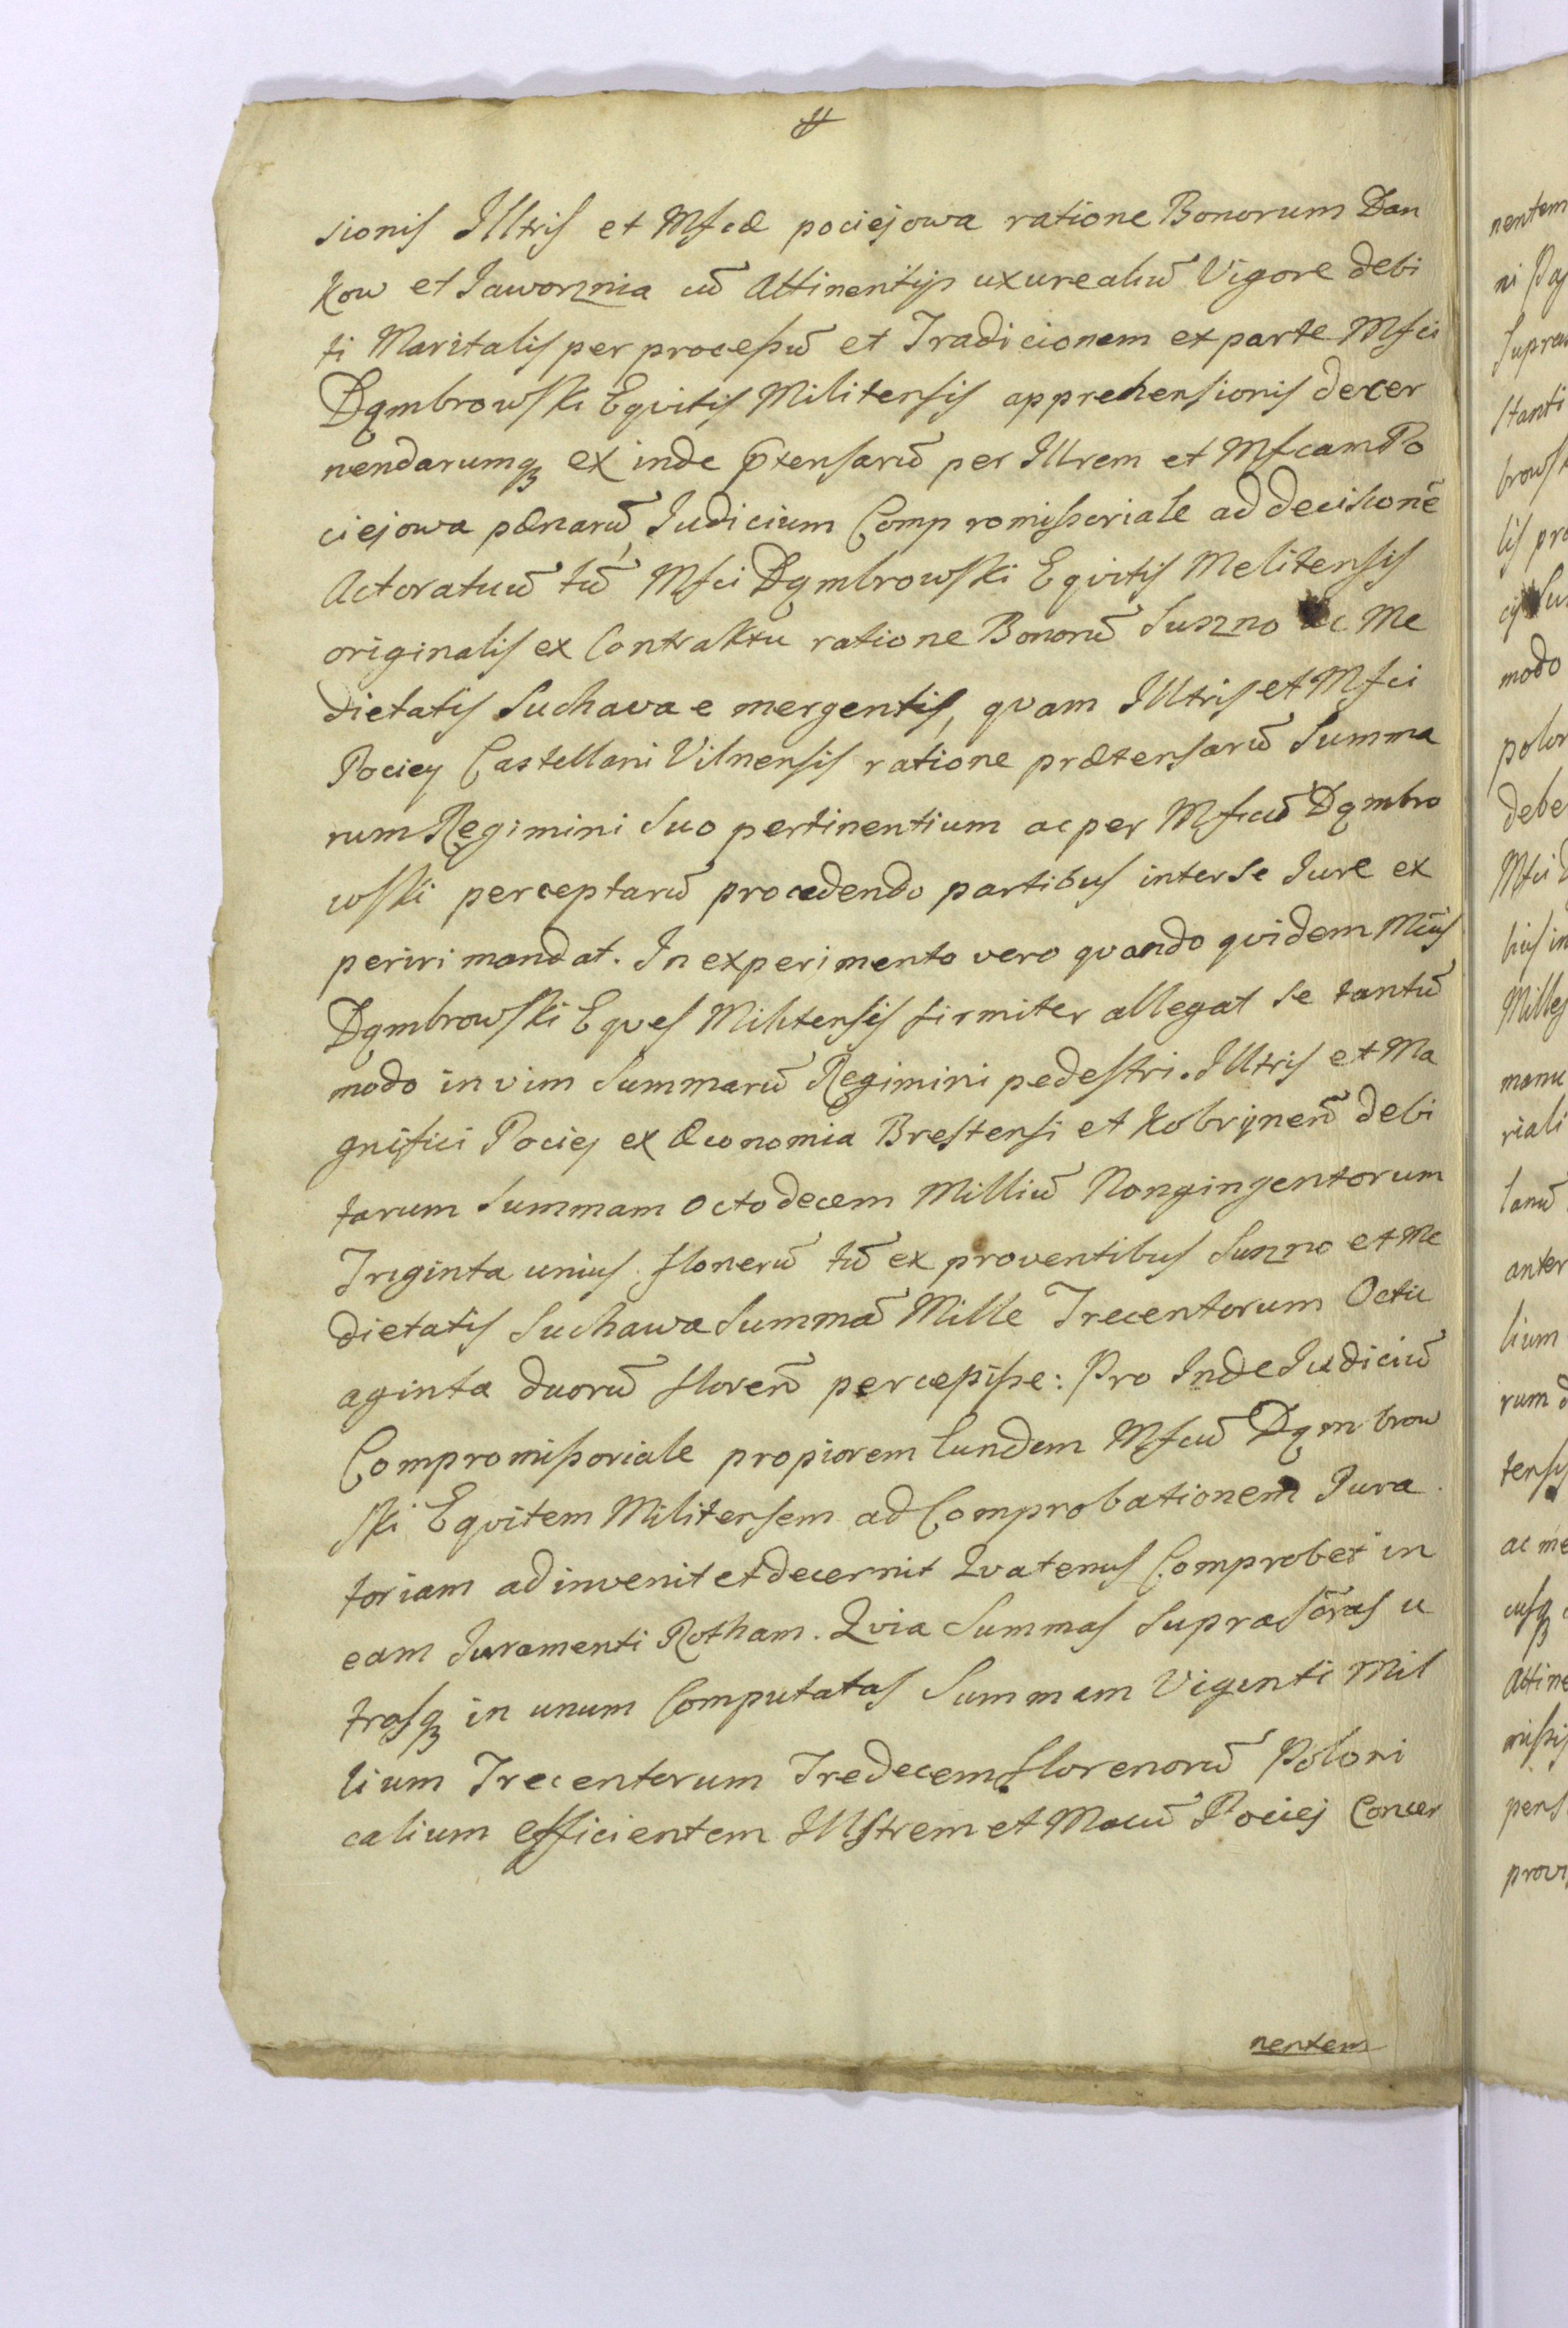 sionis Illtris et Mfcæ pociejowa ratione Bonorum Dan
kow et Jaworznia cū Attinentijs uxurealiū Vigore debi
ti Maritalis per processū et Tradicionem ex parte Mfci
Dąmbrowski Equitis Militensis apprehensionis decer
nendarumq; ex inde prætensarū per Illrem et Mfcam Po
ciejowa pænarū, Iudicium Compromissoriale ad decisionē
Actoratuū tū Mfci Dąmbrowski Equitis Melitensis
originalis ex Contraktu ratione Bonorū Suszno ac Me
dietatis Suchawa e mergentis, quam Illtris et Mfci
Pociey Castellani Vilnensis ratione prætensarū Summa
rum Regimini Suo pertinentium ac per Mfcū Dąmbro
wski perceptarū procedendo partibus inter se Jure ex
periri mandat. In experimento vero quando quidem Mcus
Dąmbrowski Eques Militensis firmiter allegat se tantū
modo in vim Summarū Regimini pedestri. Illtris et Ma
gnifici Pociej ex Æconomia Brestensi et Kobrynen̄ debi
tarum Summam octodecem Milliū Nongingentorum
Triginta unius florenū tū ex proventibus Suszno et Me
dietatis Suchawa Summā Mille Trecentorum Octu
aginta duorū floren̄ percepisse: Pro Inde Iudiciū
Compromissoriale propiorem Eundem Mfcū Dąmbrow
ski Equitem Militensem ad Comprobationem Jura
toriam adinvenit et decernit Quatenus Comprobet in
eam Juramenti Rotham. Quia Summas Supradictas u
trasq; in unum Computatas Summam Viginti Mil
lium Trecentorum Tredecem florenorū Poloni
calium efficientem Illstrem et Macū Pociej Concer
nentem